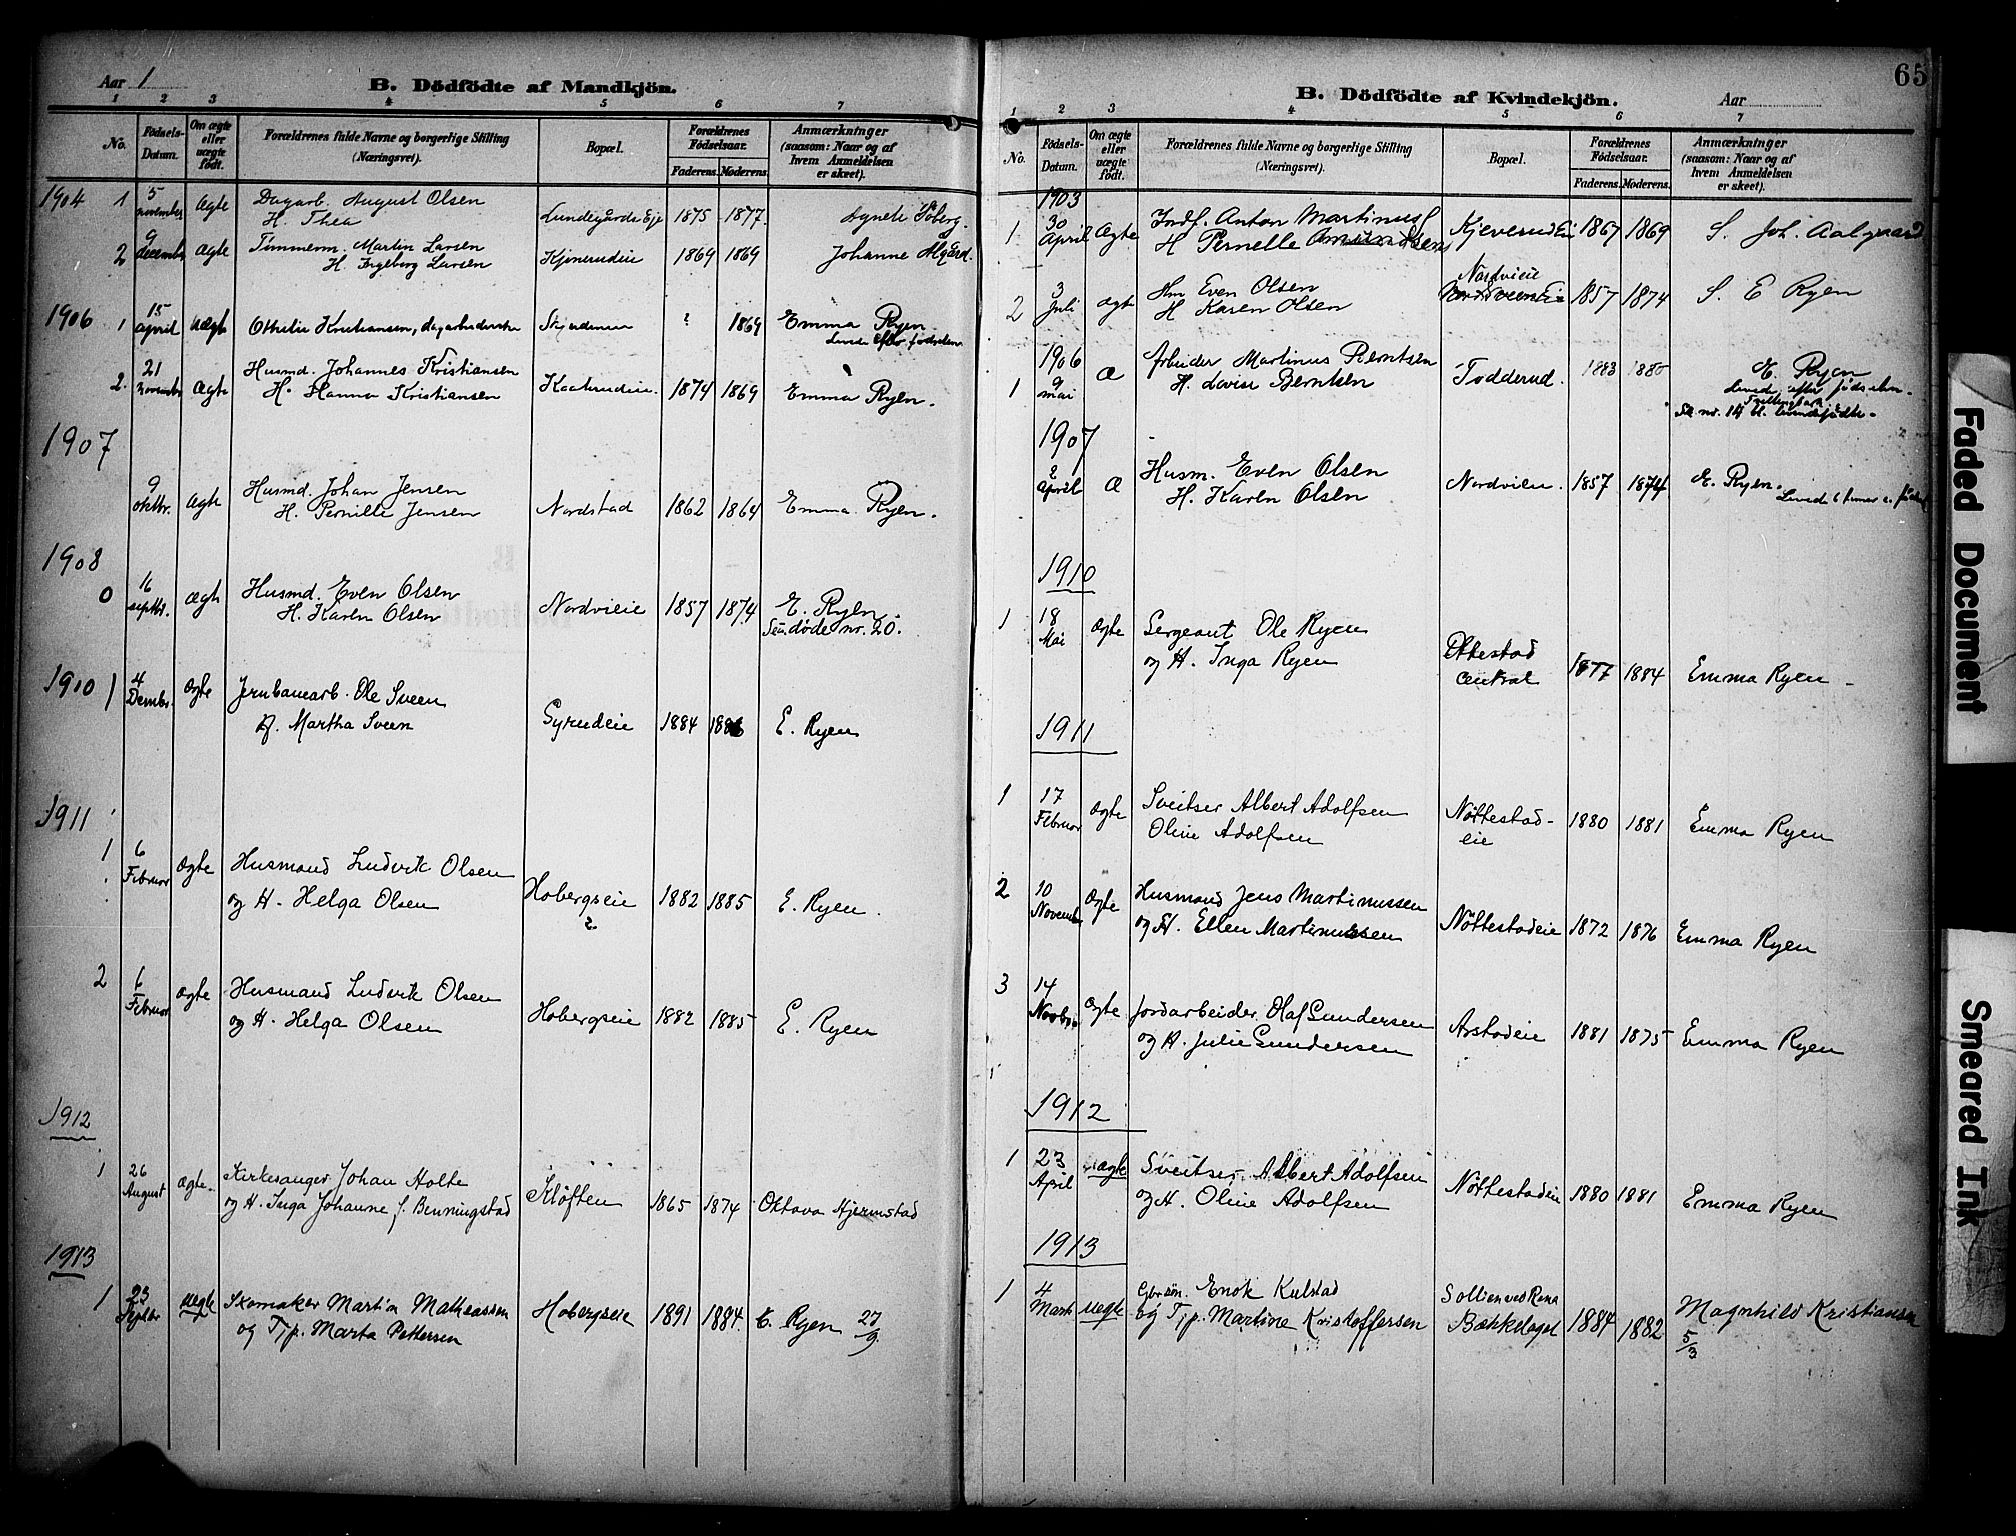 Aar 1
B. Dödfödte af Mandkjön.
1 2 3 4 5 6 7
No.
Födsels-Datum.
Om ægte eller uægte födt.
Forældrenes fulde Navne og borgerlige Stilling (Næringsvei).
Bopæl.
Forældrenes Födselsaar.
Faderens. Moderens.
Anmærkninger (saasom: Naar og af hvem Anmeldelsen er skeet).
1904 1 5 november Ægte Dagarb. August Olsen
H. Thea Lundegårds Eje 1875 1877. Agnete Söberg.
2 9 december Ægte Timmerm. Martin Larsen
H. Ingeborg Larsen 1869 1869 Johanne Algård.
1906 1 15 april uægte Othilie Kristiansen, Skjerdeneie ? 1869 Emma Ryen
efter födselen
2. 21 november Ægte Husmd. Johannes Kristiansen
H. Hanna Kristiansen Kaaterudeie. 1874 1869 Emma Ryen.
1907
9 oktbr. Ægte Husmd. Johan Jensen
H. Pernille Jensen Nordstad 1862 1864 Emma Ryen.
1908
0 16 septbr. ægte Husmd. Even Olsen
H. Karen Olsen Nordvieie 1857 1874 E. Ryen
Se döde nr. 20.
1910 1 4 Dembr. Ægte Jernbanearb. Ole Sveen
H. Martha Sveen Gyrudeie 1884 1886 E. Ryen
1911
1 6 Februar ægte Husmand Ludvik Olsen
og H. Helga Olsen Hobergseie 1882 1885 E. Ryen.
2
2 6 Februar ægte Husmand Ludvik Olsen
og H. Helga Olsen Hobergseie 1882 1885 E. Ryen
1912
1 26 August Ægte. Kirkesanger Johan Holte
og H. Inga Johanne f. Benningstad Kløften 1865 1874 Oktava Hjermstad
1913
1 23 Septbr uegte Skomaker Martin Mathiassen
og Tjp. Marta Pettersen Hobergseie 1891 1884. E. Ryen 27/9.
65
B. Dödfödte af Kvindekjön.
Aar
1 2 3 4 5 6 7
No.
Födsels-Datum.
Om ægte eller uægte födt.
Forældrenes fulde Navne og borgerlige Stilling (Næringsvei).
Bopæl.
Forældrenes Födselsaar.
Faderens. Moderens.
Anmærkninger (saasom: Naar og af hvem Anmeldelsen er skeet).
1903
1 30 April Ægte Indf. Anton Martinus
H Pernelle Kjeverudei 1867 1869 S. Joh. Aalgaard
2 3 Juli ægte Hm Even Olsen
H Karen Olsen Nordvieie 1857 1874 S. E Ryen
1906
1 9 mai Æ Arbeider Martinus Berntsen
H. Lovise Berntsen Todderud. 1883 1880 E. Ryen
Levede efter födselen.
Tvillingbarn
Se nr. 14 bl. levendefödte.
1907
2 april Æ Husm. Even Olsen
H. Karen Olsen Nordvieie. 1857 1874 E. Ryen.
Leved 6 timer e. födsel
1910
1 18 Mai Ægte Sergeant Ole Ryen
og H. Inga Ryen Ottestad central 1877 1884 Emma Ryen
1911
1 17 Februar Ægte Sveitser Albert Adolfsen
Oline Adolfsen Nöttestadeie 1880 1881 Emma Ryen
2 10 Novemb Ægte Husmand Jens Martinussen
og H. Ellen Martinussen Nöttestadeie 1872 1876 Emma Ryen
3 14 Novbr. Ægte Jordarbeider Olaf Gundersen
og H. Julie Gundersen Arstadeie 1881 1875 Emma Ryen
1912
1 23 April ægte Sveitser Albert Adolfsen
og H. Oline Adolfsen Nöttestadeie 1880 1881 Emma Ryen
1913
1 4 Marts uegte Gbrsön. Enok Kulstad
og Tjp. Martine Kristoffersen Sollien ved Rena
Bækkelaget 1884 1882 Magnhild Kristiansen
5/3
Faded Document
Smeared Ink